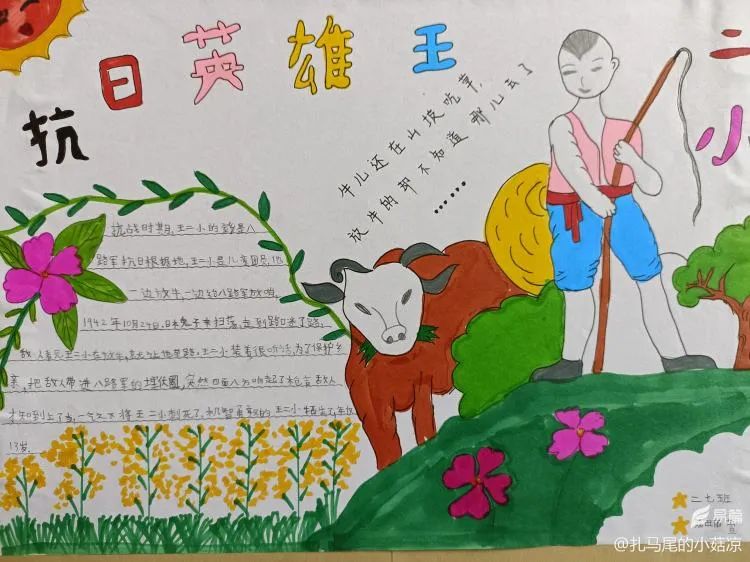 抗日英雄王二小
牛儿还在山坡吃草,
放牛的却不知道哪儿去了
……
抗战时期,王二小的家是八
路军抗日根据地,王二小是儿童团员,他
一边放牛,一边给八路军放哨。
1942年10月24日,日本鬼子来扫荡,走到路口迷了路,
敌人看见王二小在放牛,就让他带路,王二小装着很听话,为了保护乡
亲,把敌人带进八路军的埋伏圈,突然四面八方响起了枪声,敌人
才知到上了当,一气之下将王二小刺死了,机智勇敢的王二小牺牲了,年仅
13岁。
二七班
易篇
@扎马尾的小菇凉